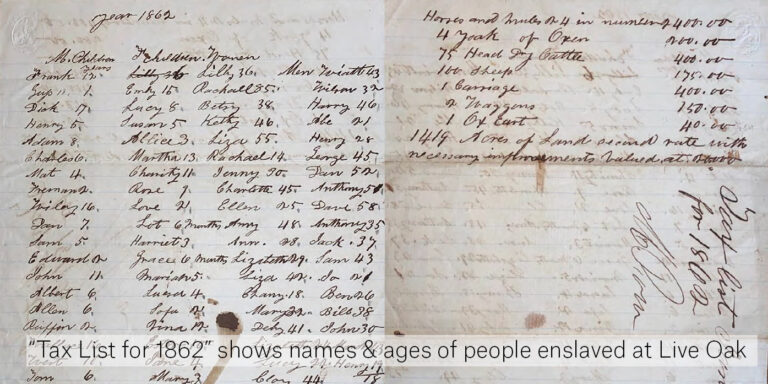 year 1862
M. Children F. children Women
years
Frank 12. Lilly 36 Lilly 36. Men Wiatt 43
Guy 11. Emly 15 Rachall 35. Wilson 32
Dick 7. Lucy 8. Betsy 38 Harry 46
Henry 5. Susan 5 Kathy 46. Abe 21
Adam 8. Allice 3. Liza 55. Henry 28
Charles 6. Martha 13. Rachael 14. George 45
Mat 4. Charity 11. Jenny 30. Dan 52
2. Rose 9. Charlotte 45. Anthony
Wiley 16. Love 2. Ellen 25. Dave 58
Dan 7. Lot 6 months Amy 48. Anthony 35
Sam 5. Harriet 3. Ann. 28. Jack. 37
Edward 2. Grace 6 months Lizabeth 29. Sam 43
John 11. Mariah 5. Liza 42. 2
Albert 6. 4. 18. Ben 26
Allen 6. Mary Bill 38
Ruffin 2. Vina 41. John 30
Tom 6. Mary 3. Clory 44. 18
Horses and mules 24 in number 2400.00
4 Yoak of Oxen 200.00
75 Head Dry Cattle 400.00
100 Sheep 175.00
1 Carriage 400.00
2 Waggons 150.00
1 Ox Cart 40.00
1419 Acres of Land second rate with
necessary improvements valued at
Tax list
for 1862
"Tax List for 1862" shows names & ages of people enslaved at Live Oak